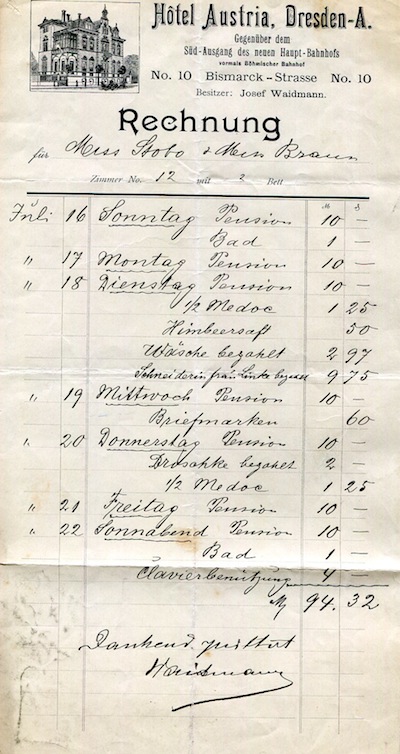 Hôtel Austria, Dresden-A.
Gegenüber dem
Süd-Ausgang des neuen Haupt-Bahnhofs
vormals Böhmischer Bahnhof
No. 10 Bismarck-Strasse No. 10
Besitzer: Josef Waidmann.
Rechnung
für Miss Stobo & Miss Braun
Zimmer No. 12 mit 2 Bett
M ₰
Juli 16 Sonntag Pension 10 —
Bad 1 —
" 17 Montag Pension 10 —
" 18 Dienstag Pension 10 —
1/2 Medoc 1 25
Himbeersaft 50
Wäsche bezahlt 2 97
Schneiderin frau Linke bezahlt 9 75
" 19 Mittwoch Pension 10 —
Briefmarken 60
" 20 Donnerstag Pension 10 —
Droschke bezahlt 2 —
1/2 Medoc 1 25
" 21 Freitag Pension 10 —
" 22 Sonnabend Pension 10 —
Bad 1 —
Clavierbenützung 4 —
M 94. 32
Dankend quittirt
Waidmann